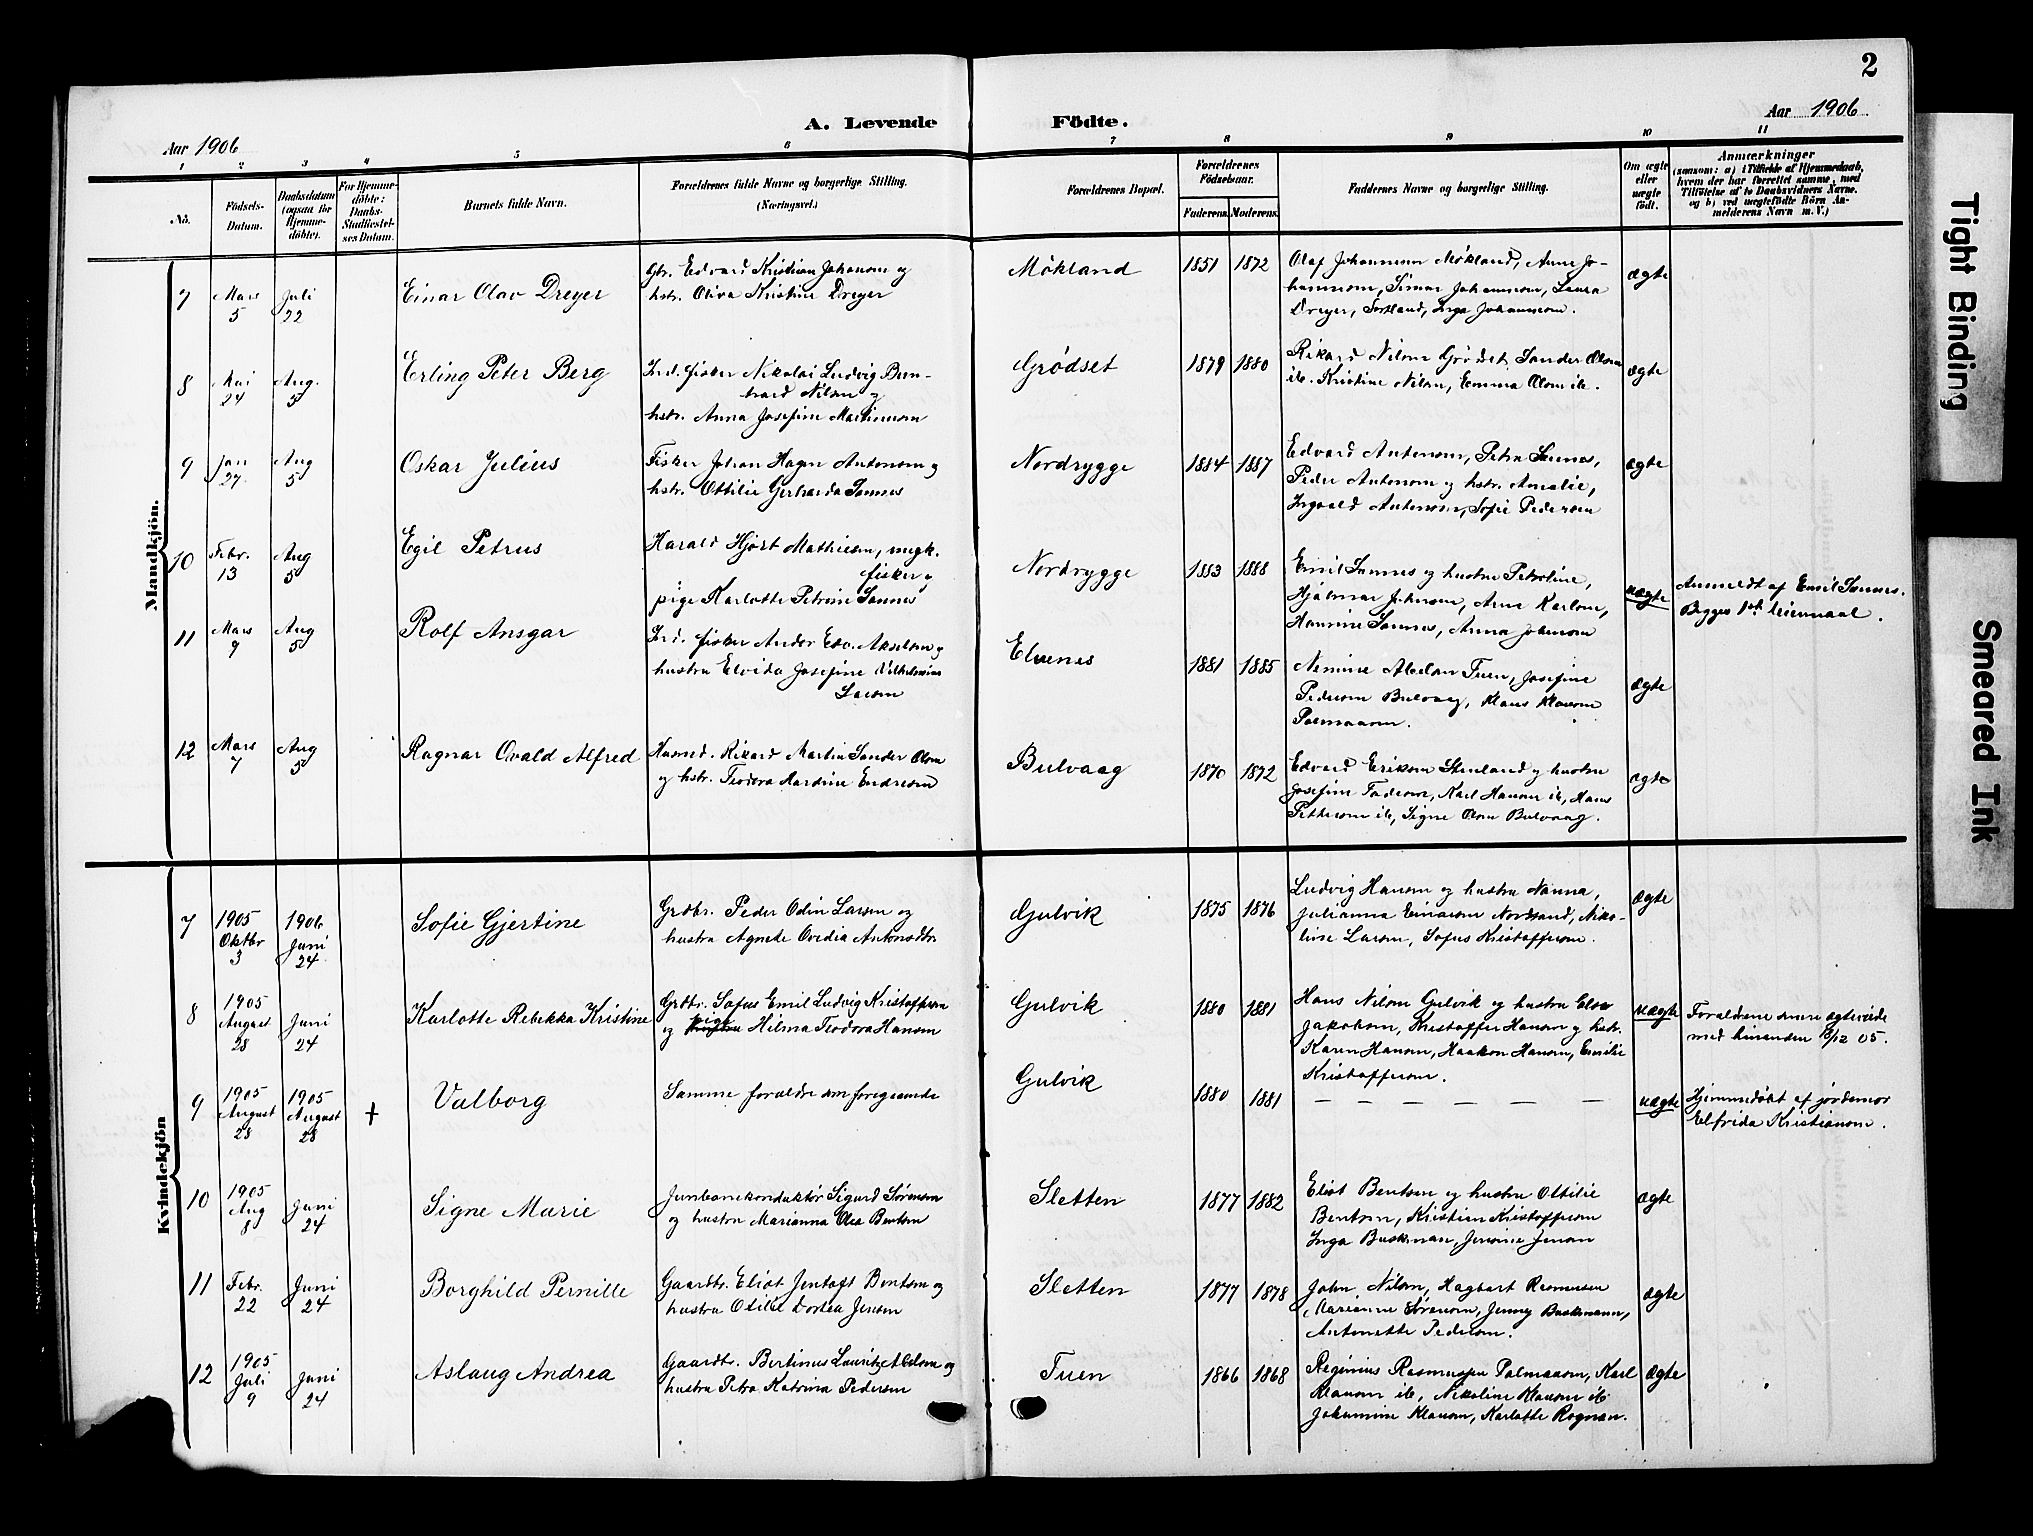 2
A. Levende Födte.
Aar 1906
Aar 1906
1 2 3 4 5 6 7 8 9 10 11
No.
Födsels-Datum.
Daabsdatum (ogsaa for Hjemmedöbte).
For Hjemmedöbte: Daabs-Stadfæstelses Datum.
Barnets fulde Navn.
Forældrenes fulde Navne og borgerlige Stilling.
(Næringsvei.)
Forældrenes Bopæl.
Forældrenes Födselsaar.
Faderens. Moderens.
Faddernes Navne og borgerlige Stilling.
Om ægte eller uægte födt.
Anmærkninger
(saasom: a) i Tilfælde af Hjemmedaab,
hvem der har forrettet samme, med
Tilföielse af to Daabsvidners Navne.
og b) ved uægtefödte Börn An-
melderens Navn m. V.)
Mandkjön.
7 Mars 5 Juli 22 Einar Olav Dreyer
Gbr. Edvard Kristian Johansen og
hstr. Oliva Kristine Dreyer
Møkland 1851 1872
Olaf Johannesen Møkland, Anne Jo-
hannesen, Simon Johannesen, Laura
Dreyer, Sortland, Inga Johannesen.
ægte
8 Mai 24 Aug. 5 Erling Peter Berg
Ind. fisker Nikolai Ludvig Bern-
hard Nilsen og
hstr. Anna Josefine Martinusen
Grødset 1879 1880
Rikard Nilsen Grødset, Sander Olsen
ib. Kristine Nilsen, Emma Olsen ib.
ægte
9 Jan 27 Aug 5 Oskar Julius
Fisker Johan Hagen Antonsen og
hstr. Ottilie Gerharda Sannes
Nordrygge 1884 1887
Edvard Antonsen, Petra Sannes,
Peder Antonsen og hstr. Amalie,
Ingvald Antonsen, Sofie Pedersen
ægte
10 Febr. 13 Aug 5 Egil Petrus
Harald Hjort Mathisen, ungk.
fisker og
pige Karlotte Petrine Sannes
Nordrygge 1883 1888
Emil Sannes og hustru Petroline,
Hjalmar Johansen, Arne Karlsen,
Hansine Sannes, Anna Johansen
uægte
Anmeldt af Emil Sannes.
Begges 1ste leiermaal.
11 Mars 9 Aug 5 Rolf Ansgar
Ind. fisker Ander Edv. Akselsen og
hustru Elvida Josefine Vilhelmine
Larsen
Elvenes 1881 1885
Pedersen Bulvaag, Klaus Klausen
ægte
12 Mars 7 Aug 5 Ragnar Osvald Alfred
Husmd. Rikard Martin Sander Olsen
og hstr. Teodora Hardine Endresen
Bulvaag 1870 1872
Edvard Eriksen Stenland og hustru
Josefine Karl Hansen ib, Hans
Pettersen ib, Signe Olsen Bulvaag.
ægte
Kvindekjön
7 1905 Oktbr 3 1906 Juni 24 Sofie Gjertine
Grdbr. Peder Odin Larsen og
hustru Agnete Ovedia Antonsdtr
Gulvik 1875 1876
Ludvig Hansen og hustru Nanna,
Julianna Einarsen Nordsand, Niko-
line Larsen, Sofus Kristoffersen.
ægte
8 1905 August 28 Juni 24 Karlotte Rebekka Kristine
Grdbr. Sofus Emil Ludvig Kristoffersen
og hustru pige Hilma Teodora Hansen
Gulvik 1880 1881
Hans Nilsen Gulvik og hustru Elsa
Jakobsen, Kristoffer Hansen og hstr.
Karen Hansen, Haakon Hansen, Emilie
Kristoffersen.
uægte
Forældrene senere ægteviede
med hinanden 18/12 05.
9 1905 August 28 1905 August 28 + Valborg
Samme forældre som foregaaende
Gulvik 1880 1881
— — — — — —
uægte
Hjemmedøbt af jordemor
Elfrida Kristiansen.
10 1905 Aug 8 Juni 24 Signe Marie
Jernbanekonduktør Sigurd Sørensen
og hustru Marianna Olea Bentsen
Sletten 1877 1882
Eliot Bentsen og hustru Ottilie
Bentsen, Kristian Kristoffersen
Inga Buckman, Jensine Jensen
ægte
11 Febr. 22 Juni 24 Borghild Pernille
Gaardbr. Eliot Jentoft Bentsen og
hustru Otilie Dortea Jensen
Sletten 1877 1878
John Nilsen, Hagbart Rasmusen
Marianne Sørensen, Jenny Buckmann,
Antonette Pedersen.
ægte
12 1905 Juli 9 Juni 24 Aslaug Andrea
Gaardbr. Bertinus Lauritz Abelsen og
hustru Petra Katrina Pedersen
Tuen 1866 1868
Reginius Rasmussen Palmaasen, Karl
Klausen ib, Nikoline Klausen ib
Johannine Klausen, Karlotte Rognan.
ægte
Tight Binding
Smeared Ink